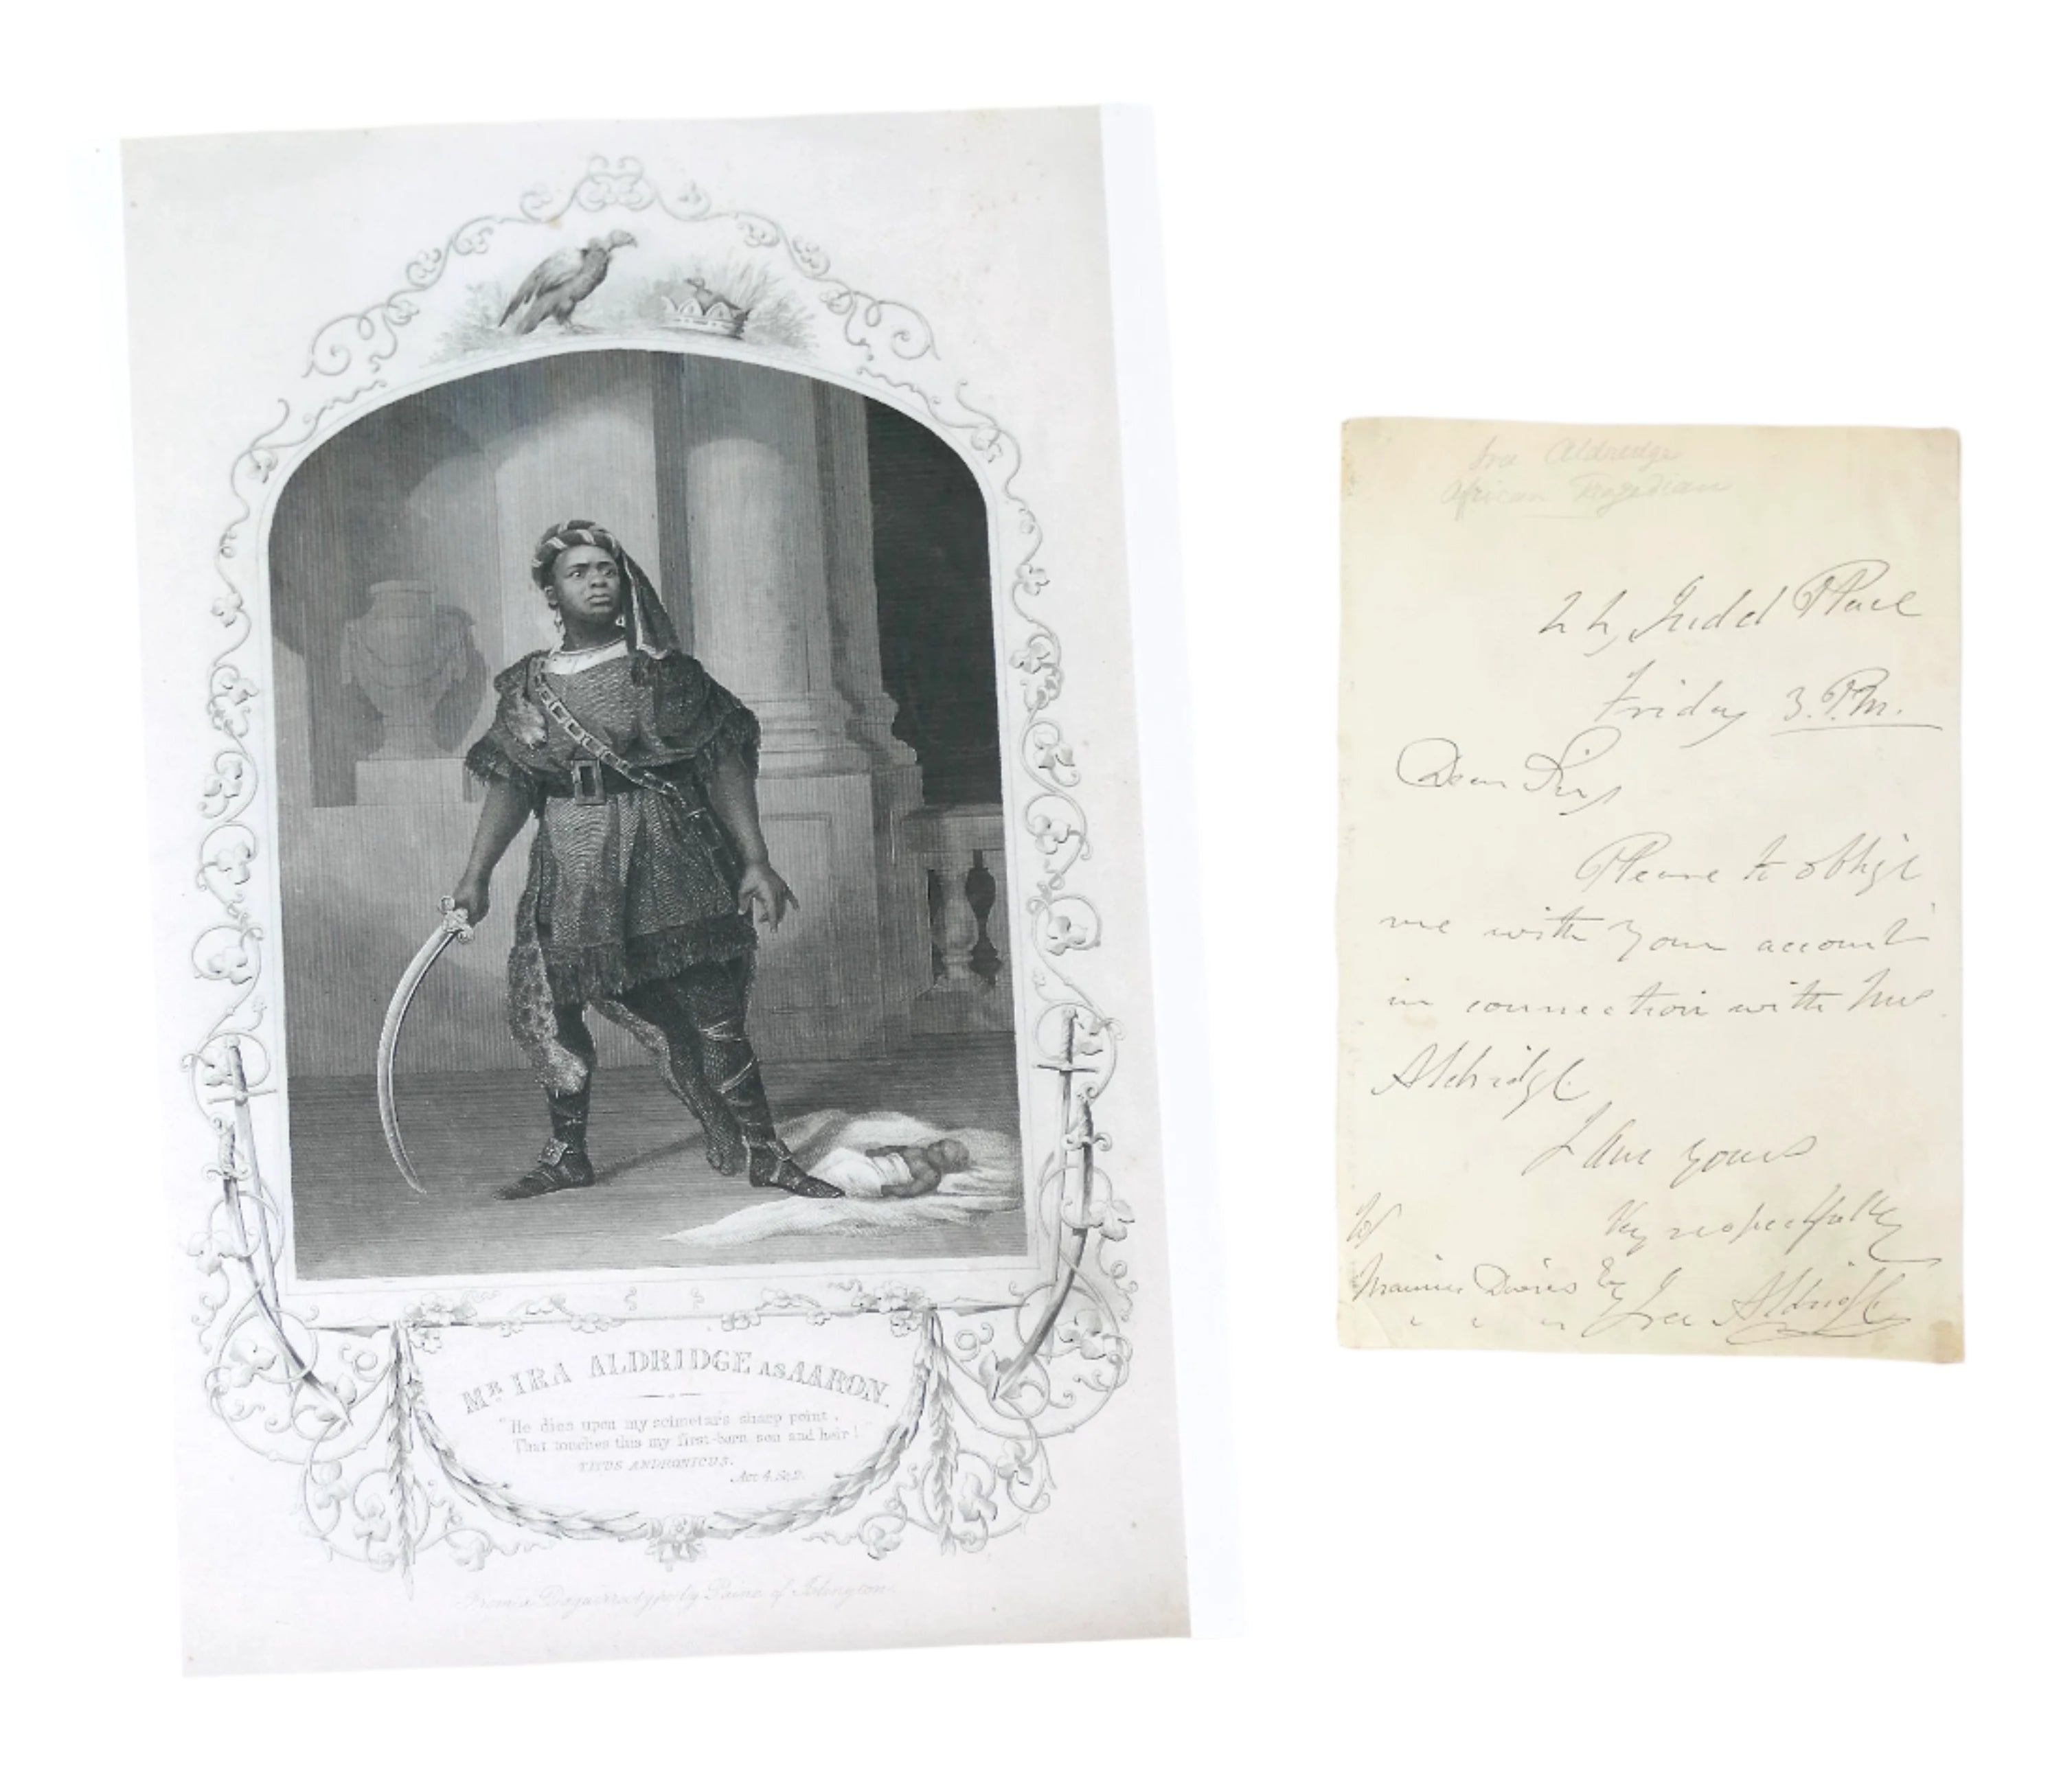 Mr. IRA ALDRIDGE AS AARON.
"He dies upon my scimetar's sharp point,
That touches this my first-born son and heir!
TITUS ANDRONICUS.
Act 4. Sc. 2.
From a Daguerreotype by Paine of Islington
Ira Aldridge
African Tragedian
Judd Place
Friday 3. P.M.
Dear Sir,
Please to oblige
me with your account
in connection with Mrs
Aldridge
I am yours
Very respectfully
To
Davies Esq
Ira Aldridge